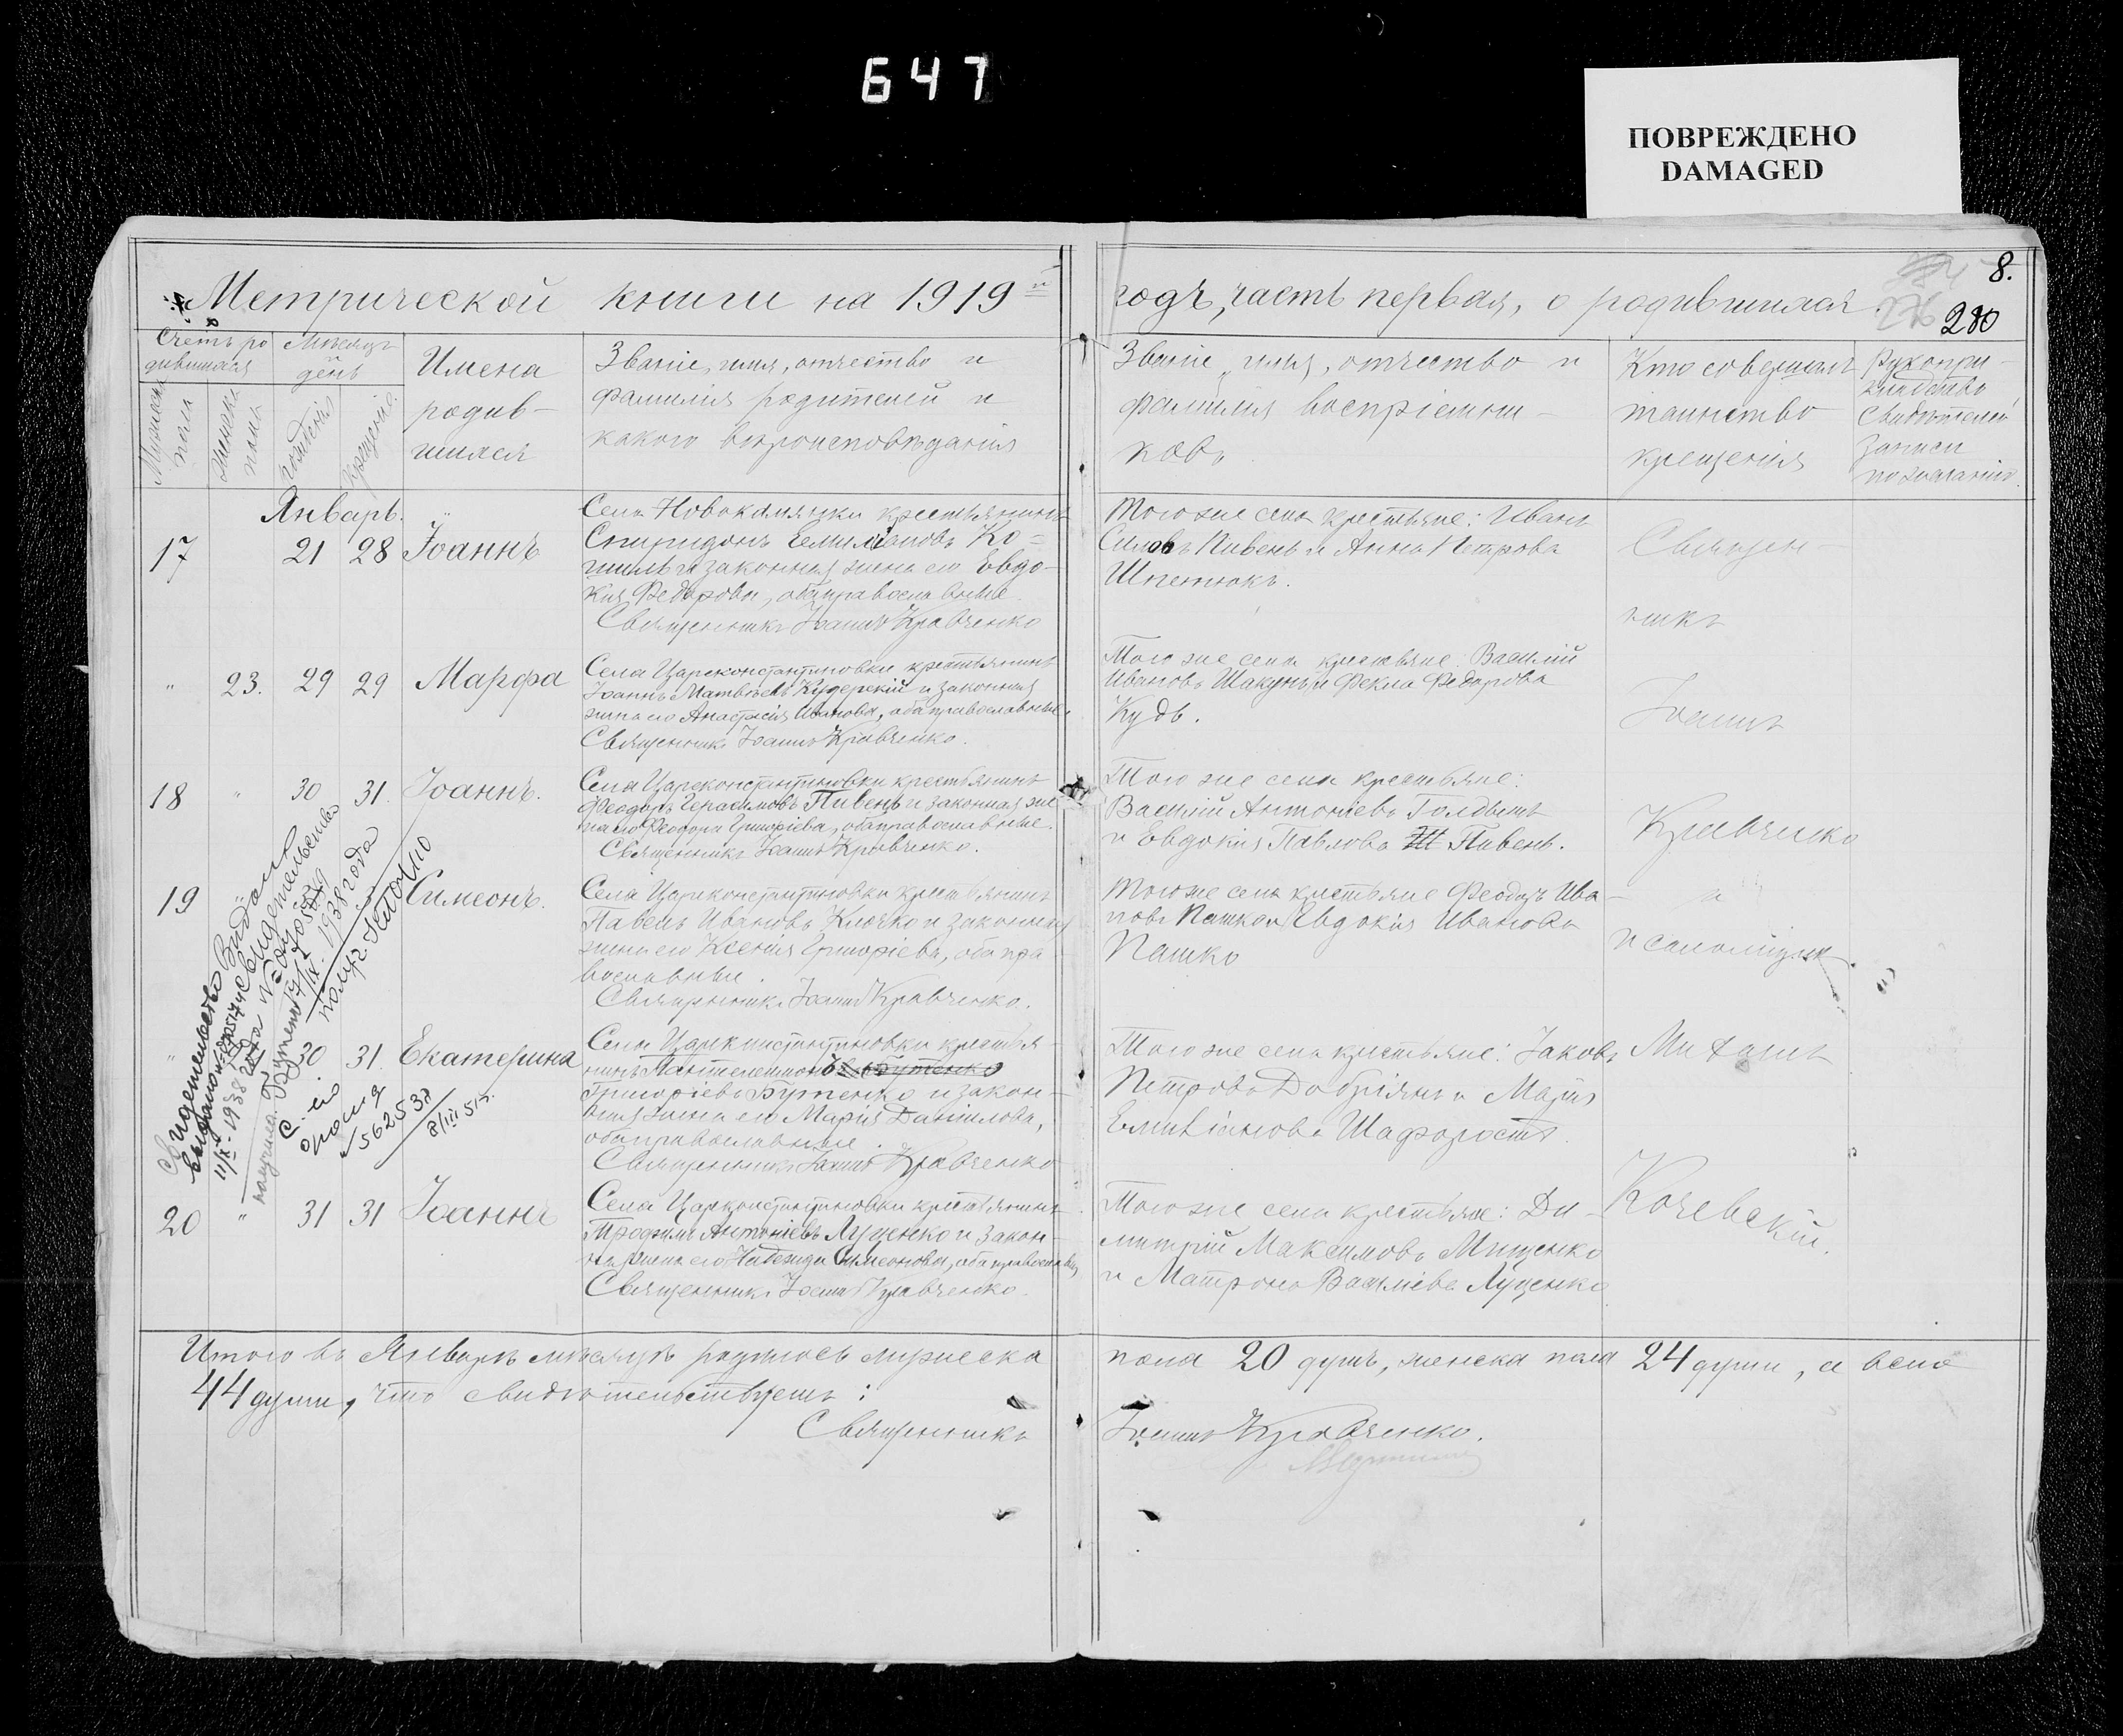 647
ПОВРЕЖДЕНО
DAMAGED
8.
280
Метрической книги на 1919й
годъ, часть первая, о родившихся
Счетъ ро
дившихся
Мужеска
пола
Женска
пола
Мѣсяцъ
и
день
рожденія
крещенія
Имена
родив-
шихся
Званіе, имя, отчество и
фамилія родителей и
какого вѣроисповѣданія
Званіе, имя, отчество и
фамилія воспріемни-
ковъ
Кто совершалъ
таинство
крещенія
Рукопри-
кладство
свидѣтелей
записи
по желанію.
Январь.
17
21 28 Іоаннъ
Села Новокамянки крестьянинъ
Спиридонъ Емиліановъ Ко-
и законная жена его Евдо-
кія Федорова, оба православные
Священникъ Іоаннъ Кравченко
Того же села крестьяне: Иванъ
Силовъ Пивень и Анна Петрова
Шпетнокъ.
Священ-
никъ
" 23. 29 29 Марфа
Села Цареконстантиновки крестьянинъ
Іоаннъ Матвѣевъ Кудерскій и законная
жена его Анастасія Иванова, оба православные
Священникъ Іоаннъ Кравченко.
Того же села крестьяне: Василій
Ивановъ Шакунъ и Фекла Федорова
Кудь.
Іоаннъ
18 " 30 31. Іоаннъ.
Села Цареконстантиновки крестьянинъ
Феодоръ Герасимовъ Пивень и законная же
на его Феодора Григоріева, оба православные.
Священникъ Іоаннъ Кравченко.
Того же села крестьяне:
Василій Антоніевъ Голдынъ
и Евдокія Павлова Пивень.
Кравченко
19 " Симеонъ.
Села Цареконстантиновки крестьянинъ
Павелъ Ивановъ Клочко и законная
жена его Ксенія Григоріева, оба пра
вославные.
Священникъ Іоаннъ Кравченко.
Того же села крестьяне Феодоръ Ива-
новъ Пашко и Евдокія Иванова
Пашко
и
псаломщик
" 30 31. Екатерина
Села Цареконстантиновки крестья-
нинъ Пантелеимонъ Бутенко
Григоріевъ Бутенко и закон-
ная жена его Марія Даніилова,
оба православные.
Священникъ Іоаннъ Кравченко
Того же села крестьяне: Іаковъ
Петровъ Добріянъ и Марія
Емиліанова Шафоростъ.
Михаилъ
20 " 31 31 Іоаннъ
Села Цареконстантиновки крестьянинъ
Трофимъ Антоніевъ Луценко и закон-
ная жена его Надежда Симеонова, оба православн
Священникъ Іоаннъ Кравченко.
Того же села крестьяне: Ди-
митрій Максимовъ Мищенко
и Матрона Василіева Луценко
Кочевскій.
Свидетельство
выдано
11/X-1938 года
Видано
свидетельство
1/IX. 1938 года
Получ. Клочко
получила Бутенко
1562537
8/III 51г.
Итого въ Январѣ мѣсяцѣ родилось мужеска
пола 20 душъ, женска пола 24 души, а всего
44 души, что свидѣтельствуемъ:
Священникъ
Іоаннъ Кравченко.